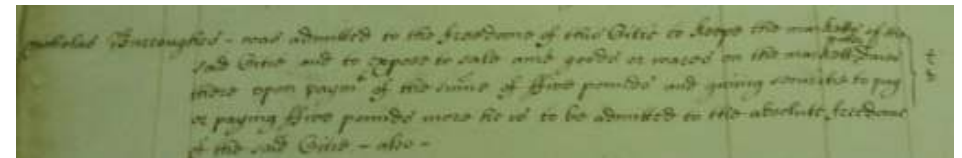 Nicholas Burroughes - was admitted to the freedome of this Citie to keepe the marketts of the
said Citie and to expose to sale anie goods or wares on the markett daies
there upon paymt of the sume of ffive pounds and giving securitie to pay
or paying ffive pounds more he is to be admitted to the absolute freedome
of the said Citie - also -